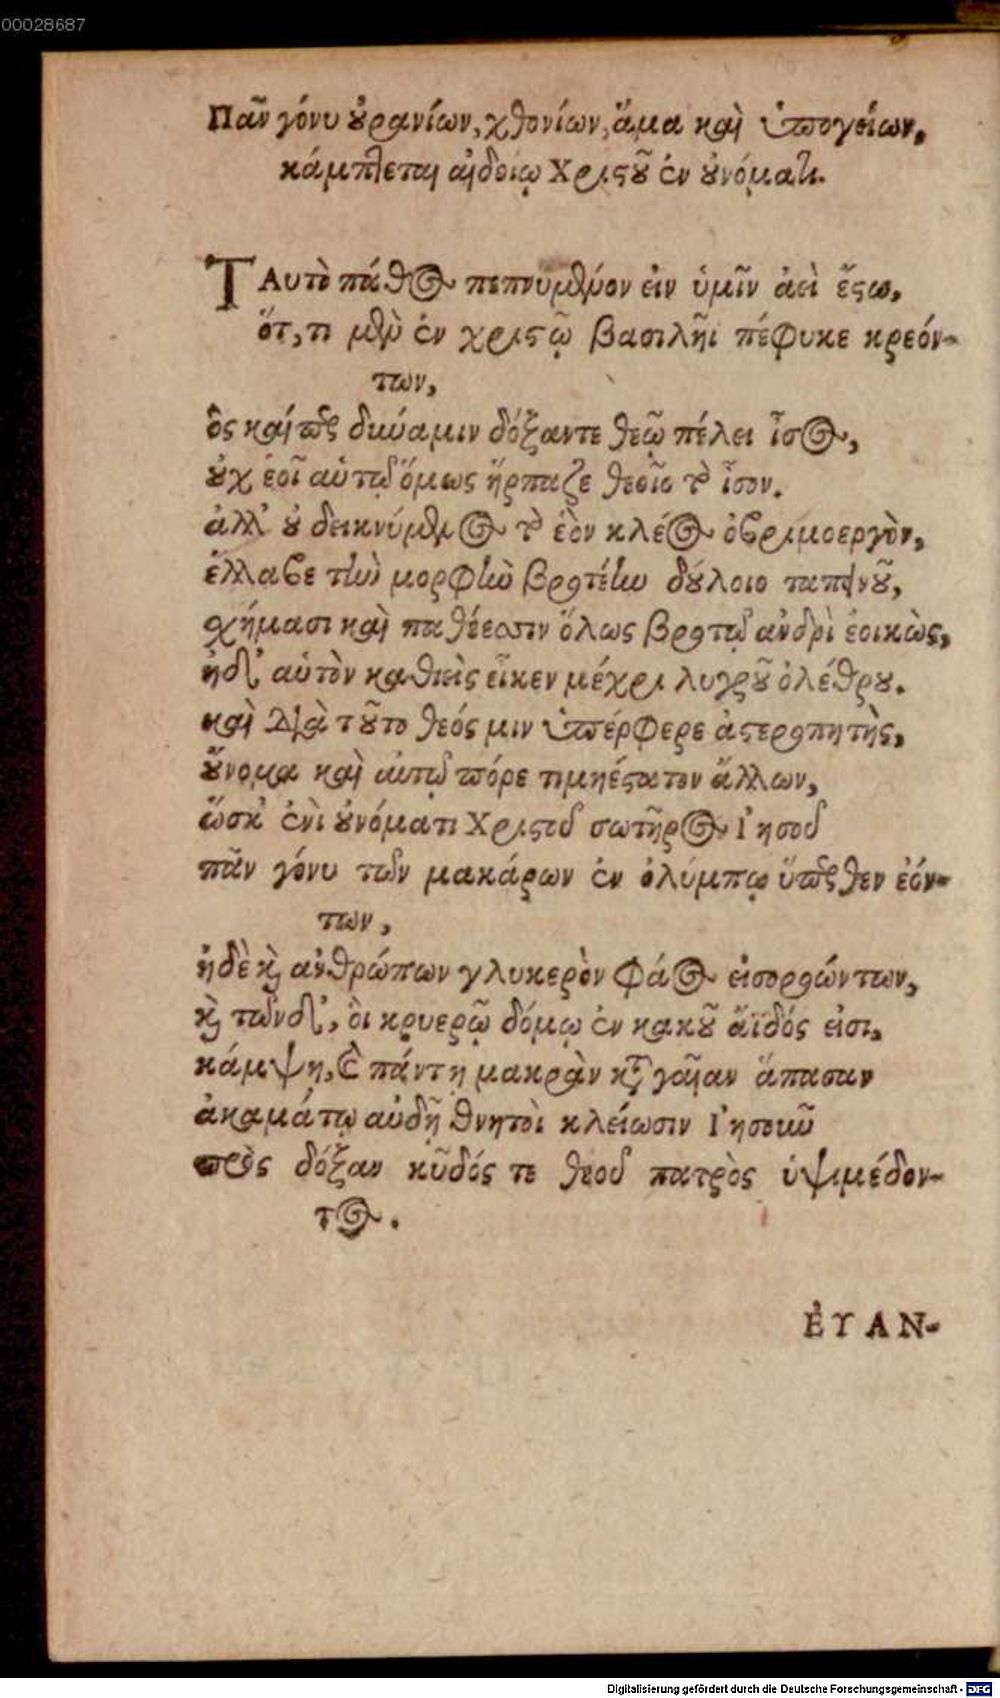 00028687
Πᾶν γόνυ ȣ̓ρανίων, χθονίων, ἅμα καὶ ὑπογείων,
κάμπτεται αἰδοίῳ Χριϛȣ͂ ἐν ȣ̓νόματι.
ΤΑυτὸ πάθος πεπνυμένον εἰν ὑμῖν ἀεὶ ἔϛω,
ὅτ,τι μὲν ἐν χριϛῷ βασιλῆϊ πέφυκε κρεόν-
των,
ὃς καίπερ δύναμιν δόξαντε θεῷ πέλει ἶσος,
ȣ̓χ ἑοῖ αὑτῷ ὅμως ἥρπαζε θεοῖο τὸ ἶσον.
ἀλλ' ȣ̓ δεικνύμενος τὸ ἑὸν κλέος ὀβριμοεργὸν,
ἔλλαβε τὴν μορφὴν βροτέην δȣ́λοιο ταπεινȣ͂,
σχήμασι καὶ παθέεσσιν ὅλως βροτῷ ἀνδρὶ ἐοικὼς,
ἠδ' αὑτὸν καθιεὶς εἶκεν μέχρι λυγρȣ͂ ὀλέθρȣ.
καὶ διὰ τȣ͂το θεός μιν ὑπέρφερε ἀϛεροπητὴς,
ȣ̓́νομα καὶ αὐτῷ πόρε τιμηέϛατον ἄλλων,
ὥσκ' ἐνὶ ȣ̓νόματι Χριϛοῦ σωτῆρος Ἰησοῦ
πᾶν γόνυ τῶν μακάρων ἐν ὀλύμπῳ ὕπερθεν ἐόν-
των,
ἠδὲ καὶ ἀνθρώπων γλυκερὸν φάος εἰσοροώντων,
καὶ τῶνδ', ὃι κρυερῷ δόμῳ ἐν κακȣ͂ ἄϊδός εἰσι,
κάμψη, καὶ πάντη μακρὰν κατὰ γαῖαν ἅπασαν
ἀκαμάτῳ αὐδῇ θνητοὶ κλείωσιν Ἰησουῦ
πρὸς δόξαν κῦδός τε θεοῦ πατρὸς ὑψιμέδον-
τος.
ἘΥΑΝ-
Digitalisierung gefördert durch die Deutsche Forschungsgemeinschaft - DFG